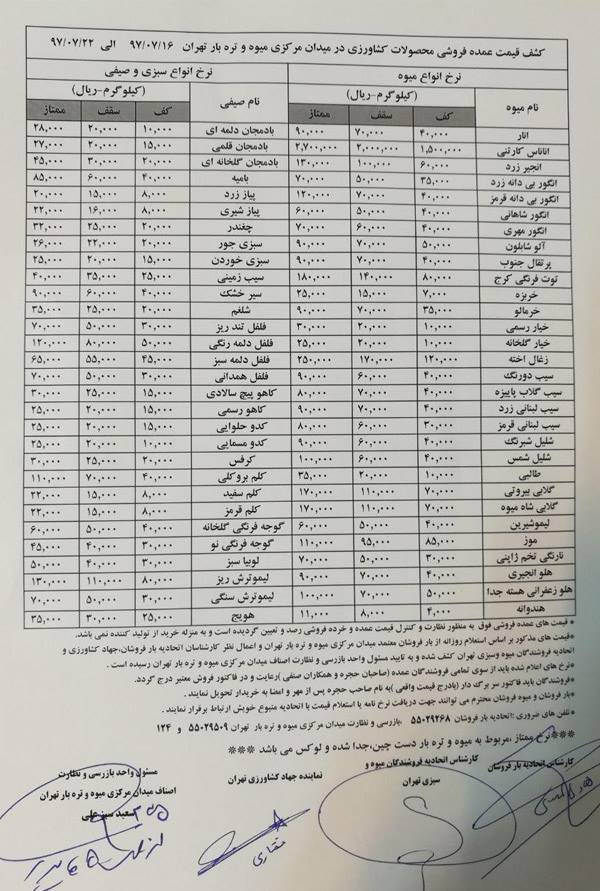 کشف قیمت عمده فروشی محصولات کشاورزی در میدان مرکزی میوه و تره بار تهران ۹۷/۰۷/۱۶ الی ۹۷/۰۷/۲۲
نرخ انواع میوه نرخ انواع سبزی و صیفی
نام میوه (کیلوگرم-ریال) نام صیفی (کیلوگرم-ریال)
کف سقف ممتاز کف سقف ممتاز
انار ۴۰,۰۰۰ ۷۰,۰۰۰ ۹۰,۰۰۰ بادمجان دلمه ای ۱۰,۰۰۰ ۲۰,۰۰۰ ۲۸,۰۰۰
اناناس کارتنی ۱,۵۰۰,۰۰۰ ۲,۰۰۰,۰۰۰ ۲,۷۰۰,۰۰۰ بادمجان قلمی ۱۵,۰۰۰ ۲۰,۰۰۰ ۲۷,۰۰۰
انجیر زرد ۶۰,۰۰۰ ۱۰۰,۰۰۰ ۱۳۰,۰۰۰ بادمجان گلخانه ای ۲۰,۰۰۰ ۳۰,۰۰۰ ۴۵,۰۰۰
انگور بی دانه زرد ۳۵,۰۰۰ ۵۰,۰۰۰ ۷۰,۰۰۰ بامیه ۴۰,۰۰۰ ۶۰,۰۰۰ ۸۵,۰۰۰
انگور بی دانه قرمز ۴۰,۰۰۰ ۷۰,۰۰۰ ۱۲۰,۰۰۰ پیاز زرد ۸,۰۰۰ ۱۵,۰۰۰ ۲۰,۰۰۰
انگور شاهانی ۴۰,۰۰۰ ۵۰,۰۰۰ ۶۰,۰۰۰ پیاز شیری ۸,۰۰۰ ۱۶,۰۰۰ ۲۲,۰۰۰
انگور مهری ۴۰,۰۰۰ ۶۰,۰۰۰ ۷۰,۰۰۰ چغندر ۲۰,۰۰۰ ۲۵,۰۰۰ ۳۲,۰۰۰
آلو شابلون ۵۰,۰۰۰ ۷۰,۰۰۰ ۹۰,۰۰۰ سبزی جور ۲۰,۰۰۰ ۲۲,۰۰۰ ۲۶,۰۰۰
پرتقال جنوب ۴۰,۰۰۰ ۷۰,۰۰۰ ۹۰,۰۰۰ سبزی خوردن ۱۵,۰۰۰ ۲۰,۰۰۰ ۲۵,۰۰۰
توت فرنگی کرج ۸۰,۰۰۰ ۱۴۰,۰۰۰ ۱۸۰,۰۰۰ سیب زمینی ۲۵,۰۰۰ ۳۵,۰۰۰ ۴۰,۰۰۰
خربزه ۷,۰۰۰ ۱۵,۰۰۰ ۲۵,۰۰۰ سیر خشک ۴۰,۰۰۰ ۶۰,۰۰۰ ۹۰,۰۰۰
خرمالو ۳۵,۰۰۰ ۷۰,۰۰۰ ۹۰,۰۰۰ شلغم ۲۰,۰۰۰ ۲۵,۰۰۰ ۳۵,۰۰۰
خیار رسمی ۱۰,۰۰۰ ۲۰,۰۰۰ ۳۰,۰۰۰ فلفل تند ریز ۳۰,۰۰۰ ۵۰,۰۰۰ ۷۰,۰۰۰
خیار گلخانه ۱۰,۰۰۰ ۲۰,۰۰۰ ۲۵,۰۰۰ فلفل دلمه رنگی ۵۰,۰۰۰ ۸۰,۰۰۰ ۱۲۰,۰۰۰
زغال اخته ۱۲۰,۰۰۰ ۱۷۰,۰۰۰ ۲۵۰,۰۰۰ فلفل دلمه سبز ۴۵,۰۰۰ ۵۵,۰۰۰ ۶۵,۰۰۰
سیب دورنگ ۴۰,۰۰۰ ۶۰,۰۰۰ ۹۰,۰۰۰ فلفل همدانی ۳۰,۰۰۰ ۵۰,۰۰۰ ۷۰,۰۰۰
سیب گلاب پاییزه ۴۰,۰۰۰ ۷۰,۰۰۰ ۸۰,۰۰۰ کاهو پیچ سالادی ۱۵,۰۰۰ ۲۵,۰۰۰ ۳۰,۰۰۰
سیب لبنانی زرد ۴۰,۰۰۰ ۶۰,۰۰۰ ۹۰,۰۰۰ کاهو رسمی ۱۵,۰۰۰ ۲۰,۰۰۰ ۲۵,۰۰۰
سیب لبنانی قرمز ۳۰,۰۰۰ ۶۰,۰۰۰ ۸۰,۰۰۰ کدو حلوایی ۱۵,۰۰۰ ۲۰,۰۰۰ ۲۵,۰۰۰
شلیل شبرنگ ۴۰,۰۰۰ ۶۰,۰۰۰ ۹۰,۰۰۰ کدو مسمایی ۱۰,۰۰۰ ۲۰,۰۰۰ ۲۵,۰۰۰
شلیل شمس ۴۰,۰۰۰ ۶۰,۰۰۰ ۱۰۰,۰۰۰ کرفس ۲۰,۰۰۰ ۲۵,۰۰۰ ۳۰,۰۰۰
طالبی ۱۰,۰۰۰ ۲۰,۰۰۰ ۳۵,۰۰۰ کلم بروکلی ۴۰,۰۰۰ ۷۰,۰۰۰ ۱۱۰,۰۰۰
گلابی بیروتی ۷۰,۰۰۰ ۱۱۰,۰۰۰ ۱۷۰,۰۰۰ کلم سفید ۸,۰۰۰ ۱۵,۰۰۰ ۲۲,۰۰۰
گلابی شاه میوه ۷۰,۰۰۰ ۱۱۰,۰۰۰ ۱۷۰,۰۰۰ کلم قرمز ۸,۰۰۰ ۱۵,۰۰۰ ۲۲,۰۰۰
لیموشیرین ۴۰,۰۰۰ ۵۰,۰۰۰ ۶۰,۰۰۰ گوجه فرنگی گلخانه ۴۰,۰۰۰ ۵۰,۰۰۰ ۶۰,۰۰۰
موز ۸۵,۰۰۰ ۹۵,۰۰۰ ۱۱۰,۰۰۰ گوجه فرنگی نو ۳۰,۰۰۰ ۴۰,۰۰۰ ۴۵,۰۰۰
نارنگی تخم ژاپنی ۳۰,۰۰۰ ۵۰,۰۰۰ ۷۰,۰۰۰ لوبیا سبز ۳۰,۰۰۰ ۴۰,۰۰۰ ۵۰,۰۰۰
هلو انجیری ۴۰,۰۰۰ ۷۰,۰۰۰ ۹۰,۰۰۰ لیموترش ریز ۸۰,۰۰۰ ۱۱۰,۰۰۰ ۱۳۰,۰۰۰
هلو زعفرانی هسته جدا ۵۰,۰۰۰ ۷۰,۰۰۰ ۱۰۰,۰۰۰ لیموترش سنگی ۳۰,۰۰۰ ۵۰,۰۰۰ ۷۰,۰۰۰
هندوانه ۴,۰۰۰ ۸,۰۰۰ ۱۱,۰۰۰ هویج ۲۵,۰۰۰ ۳۰,۰۰۰ ۳۵,۰۰۰
*قیمت های عمده فروشی فوق به منظور نظارت و کنترل قیمت عمده و خرده فروشی رصد و تعیین گردیده است و به منزله خرید از تولید کننده نمی باشد.
*قیمت های مذکور بر اساس استعلام روزانه از بار فروشان معتمد میدان مرکزی میوه و تره بار تهران و اعمال نظر کارشناسان اتحادیه بارفروشان،جهاد کشاورزی و
اتحادیه فروشندگان میوه وسبزی تهران کشف شده و به تایید مسئول واحد بازرسی و نظارت اصناف میدان مرکزی میوه و تره بار تهران رسیده است.
*نرخ های اعلام شده باید از سوی تمامی فروشندگان عمده (صاحبان حجره و همکاران صنفی)رعایت و در فاکتور فروش معتبر درج گردد.
*فروشندگان باید فاکتور سر برگ دار (بادرج قیمت واقعی )به نام صاحب حجره پس از مهر و امضا به خریدار تحویل نمایند.
*بار فروشان و میوه فروشان محترم می توانند جهت دریافت نرخ نامه یا استعلام قیمت با اتحادیه متبوع خویش ارتباط برقرار نمایند.
*تلفن های ضروری :اتحادیه بار فروشان ۵۵۰۲۹۲۶۸ ،بازرسی و نظارت میدان مرکزی میوه و تره بار تهران ۵۵۰۲۹۵۰۹ و ۱۲۴
***نرخ ممتاز ،مربوط به میوه و تره بار دست چین،جدا شده و لوکس می باشد ***
کارشناس اتحادیه بار فروشان
کارشناس اتحادیه فروشندگان میوه و
سبزی تهران
نماینده جهاد کشاورزی تهران
مسئول واحد بازرسی و نظارت
اصناف میدان مرکزی میوه و تره بار تهران
سعید سبزعلی